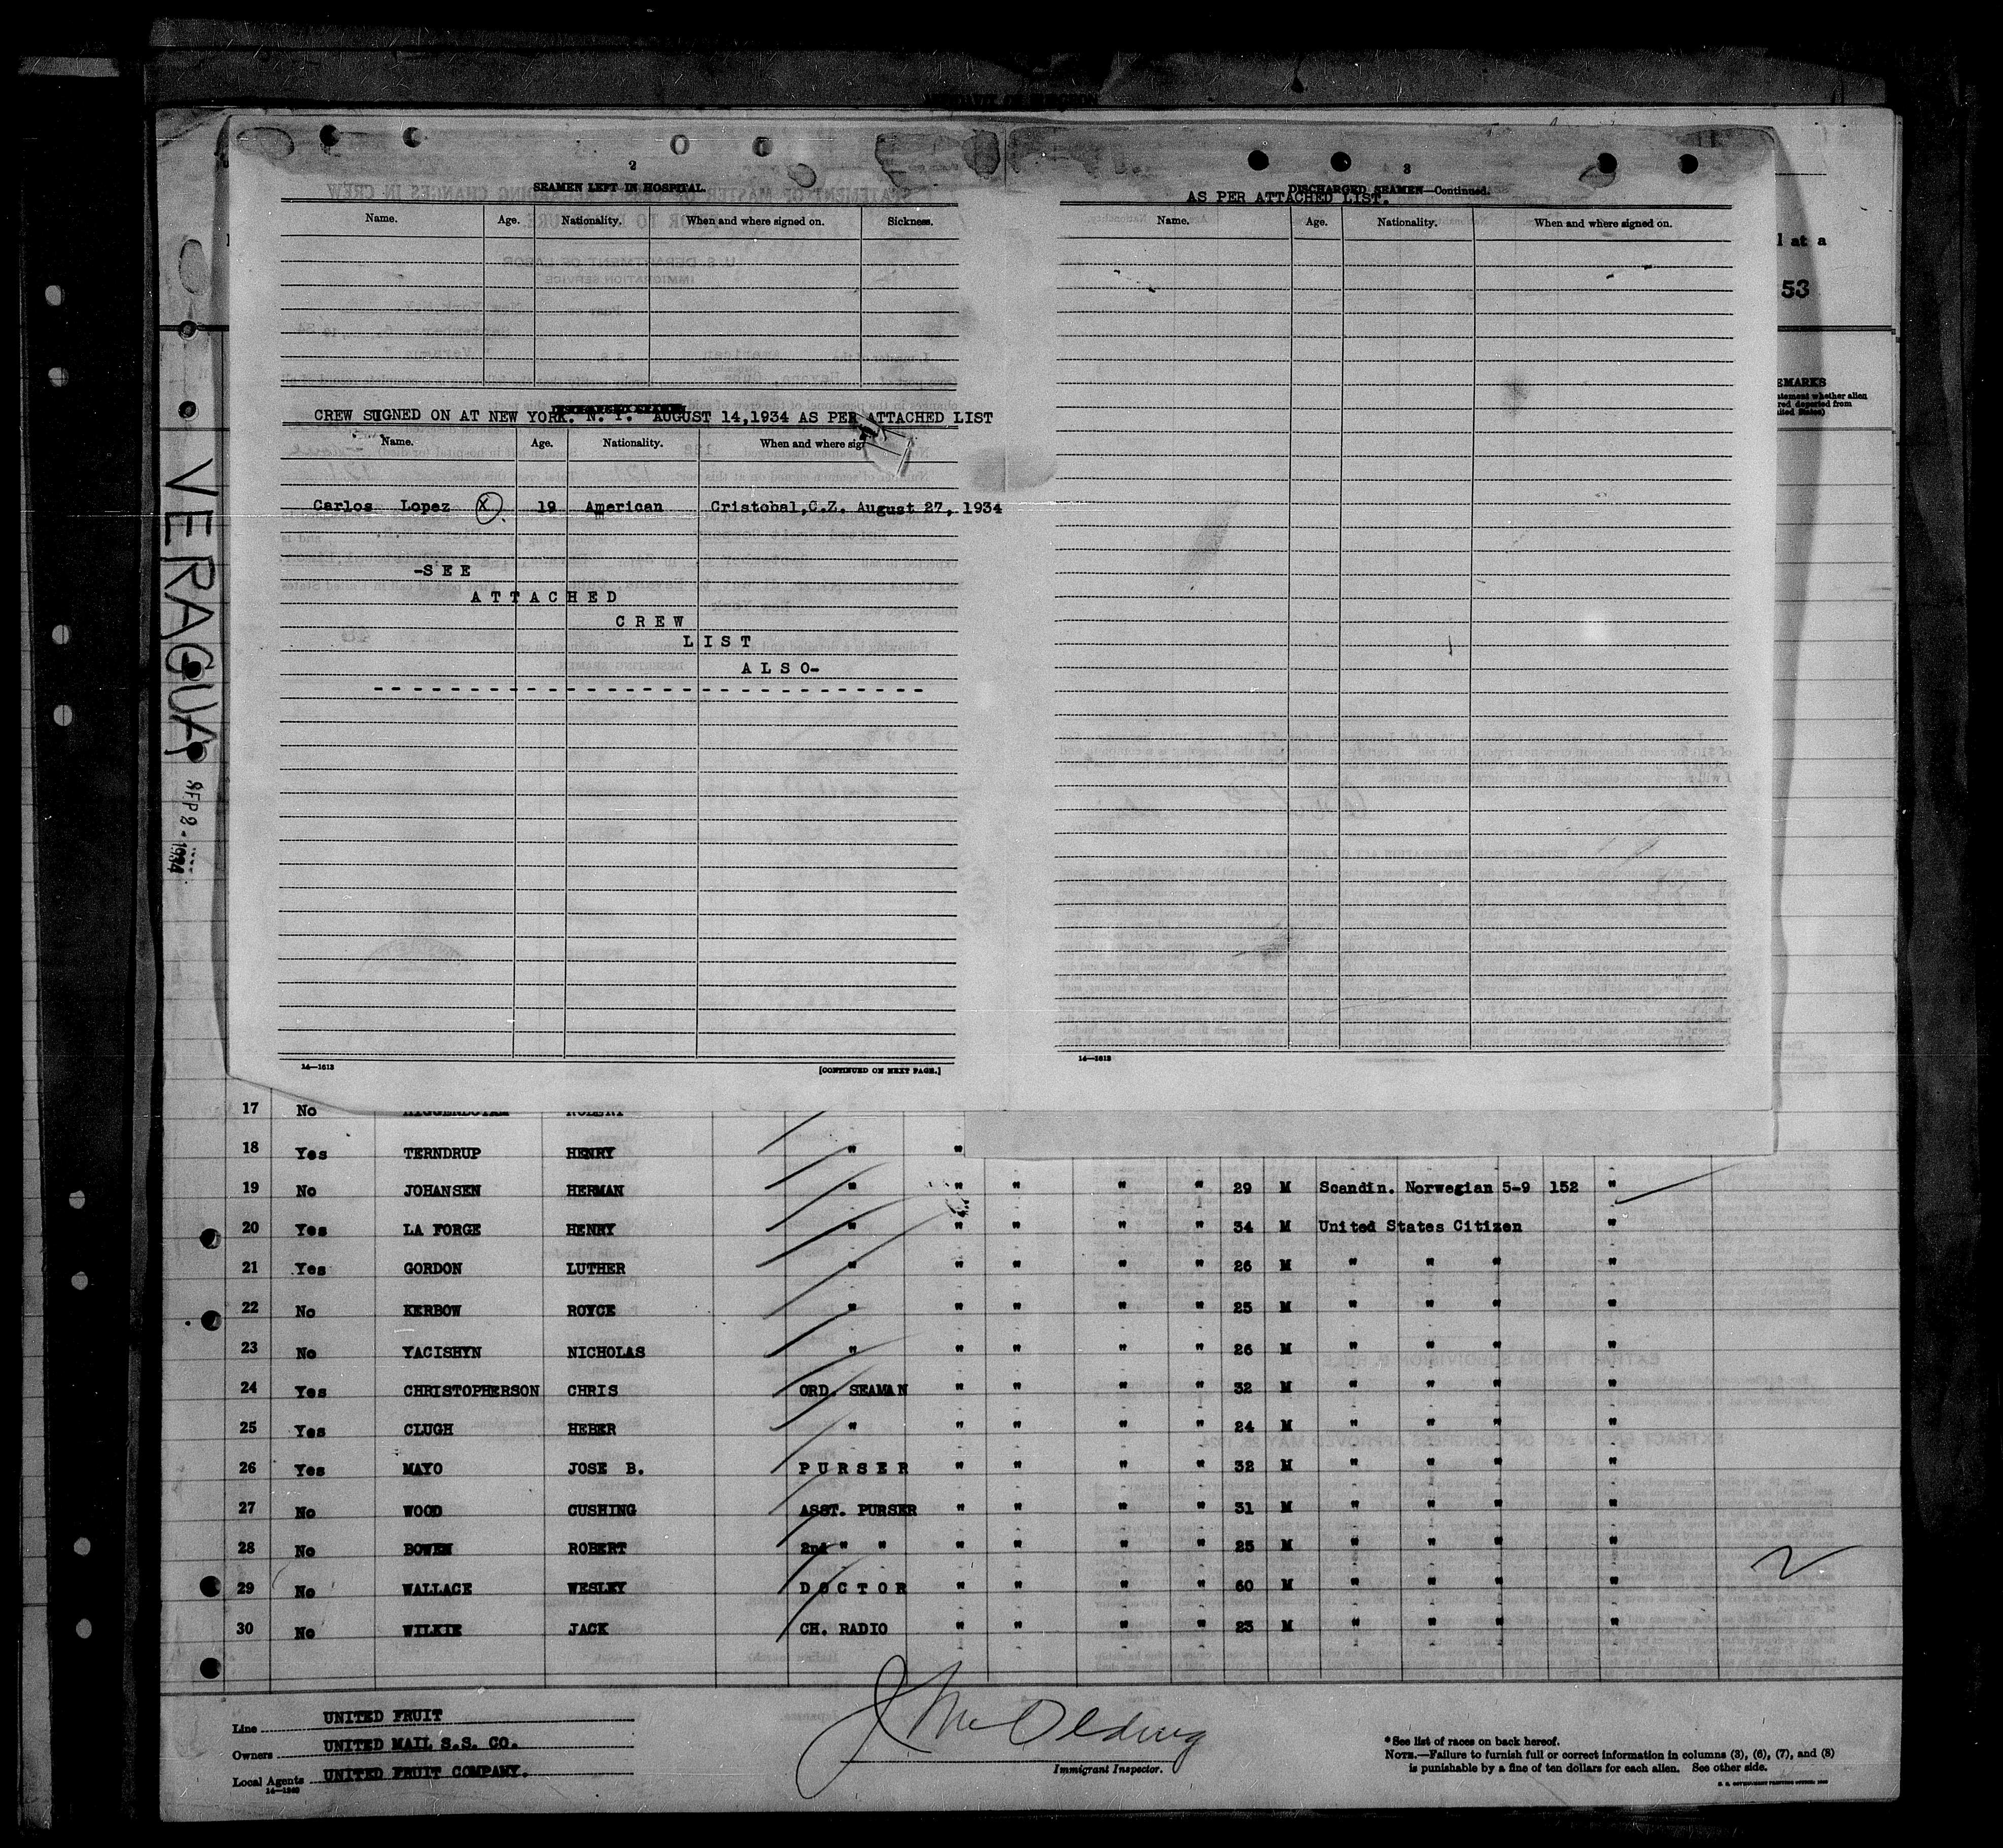 2
SEAMEN LEFT IN HOSPITAL.
Name. Age. Nationality. When and where signed on. Sickness.
CREW SIGNED ON AT NEW YORK. N. Y. AUGUST 14,1934 AS PER ATTACHED LIST
Name. Age. Nationality. When and where sig
Carlos Lopez X 19 American Cristobal,C.Z. August 27, 1934
-SEE
ATTACHED
CREW
LIST
ALSO-
14—1613 [CONTINUED ON NEXT PAGE.]
3
DISCHARGED SEAMEN—Continued.
AS PER ATTACHED LIST.
Name. Age. Nationality. When and where signed on.
14—1613
l at a
53
EMARKS
atement whether alien
red deported from
ited States)
VERAGUA
SEP 2 - 1934
17 No
18 Yes TERNDRUP HENRY " "
19 No JOHANSEN HERMAN " " " " " 29 M Scandin. Norwegian 5-9 152 "
20 Yes LA FORGE HENRY " " " " " 34 M United States Citizen "
21 Yes GORDON LUTHER " " " " " 26 M " " " "
22 No KERBOW ROYCE " " " " " 25 M " " " "
23 No YACISHYN NICHOLAS " " " " " 26 M " " " "
24 Yes CHRISTOPHERSON CHRIS ORD. SEAMAN " " " " 32 M " " " "
25 Yes CLUGH HEBER " " " " " 24 M " " " "
26 Yes MAYO JOSE B. PURSER " " " " 32 M " " " "
27 No WOOD CUSHING ASST. PURSER " " " " 31 M " " " "
28 No BOWEN ROBERT 2nd " " " " " " 25 M " " " "
29 No WALLACE WESLEY DOCTOR " " " " 60 M " " " "
30 No WILKIE JACK CH. RADIO " " " " 23 M " " " "
2
Line UNITED FRUIT
Owners UNITED MAIL S.S. CO.
Local Agents UNITED FRUIT COMPANY.
Immigrant Inspector.
*See list of races on back hereof.
NOTE.—Failure to furnish full or correct information in columns (3), (6), (7), and (8)
is punishable by a fine of ten dollars for each alien. See other side.